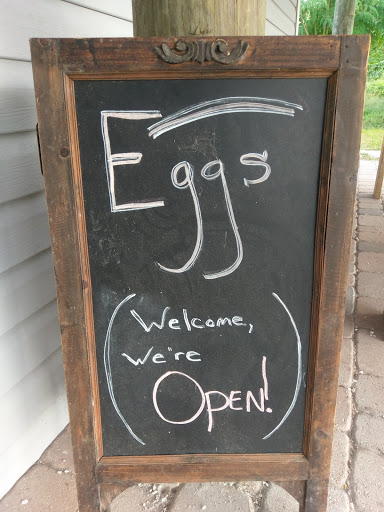 Eggs
(Welcome,
We're
OPEN!)